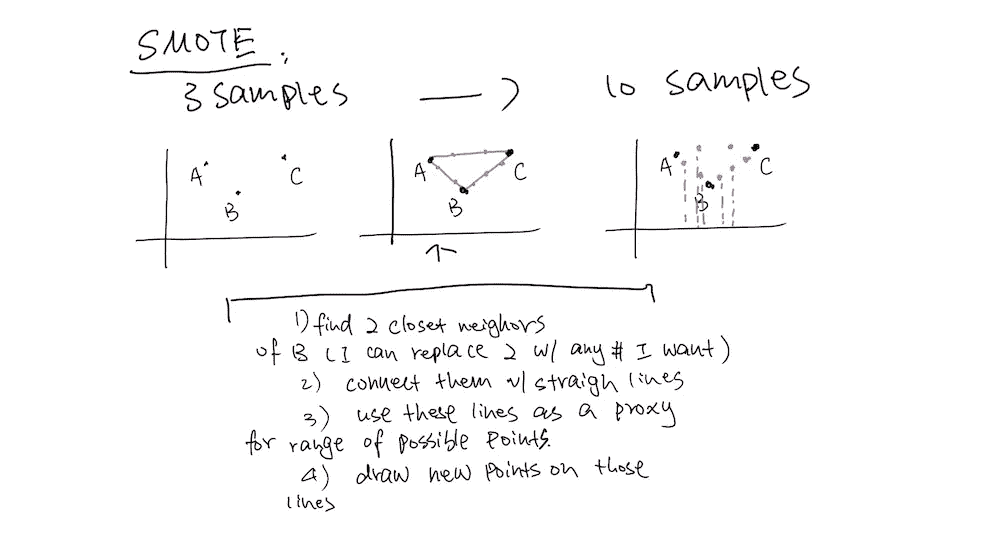 SMOTE.
3 samples → 10 samples
A C B
A C B
A C B
1) find 2 closet neighors
of B (I can replace 2 w/ any # I want)
2) connect them w/ straigh lines
3) use these lines as a proxy
for range of possible points.
4) draw new points on those
lines